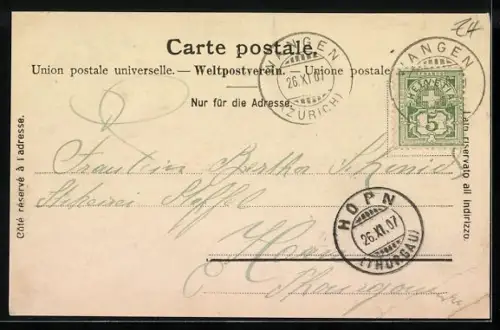 24
Carte postale.
Union postale universelle. — Weltpostverein. — Unione postale
Nur für die Adresse.
Côté réservé à l'adresse.
Lato riservato all indirizzo.
WANGEN
26.XI.07
(ZÜRICH)
WANGEN
HELVETIA
5
Fräulein Bertha
HORN
26.XI.07
(THURGAU)
Horn
Thurgau